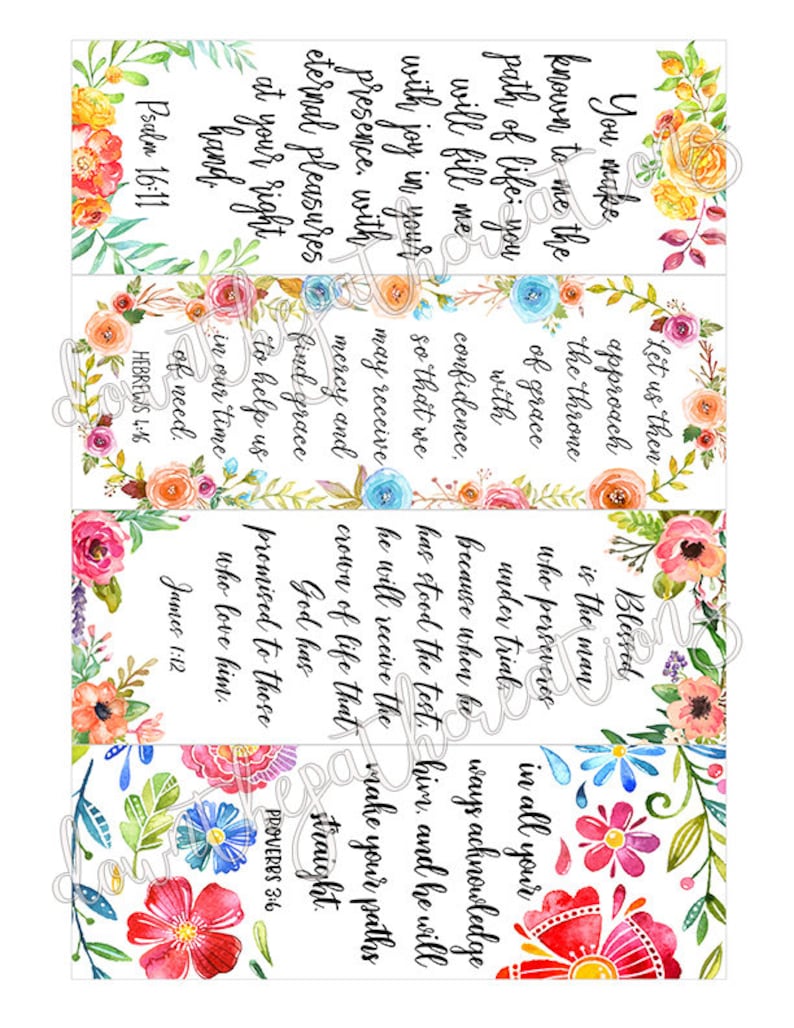 You make
known to me the
path of life; you
will fill me
with joy in your
presence, with
eternal pleasures
at your right
hand.
Psalm 16:11
Let us then
approach
the throne
of grace
with
confidence,
so that we
may receive
mercy and
find grace
to help us
in our time
of need.
HEBREWS 4:16
Blessed
is the man
who perseveres
under trial,
because when he
has stood the test,
he will receive the
crown of life that
God has
promised to those
who love him.
James 1:12
in all your
ways acknowledge
him, and he will
make your paths
straight.
PROVERBS 3:6
downthepathcreations
downthepathcreations